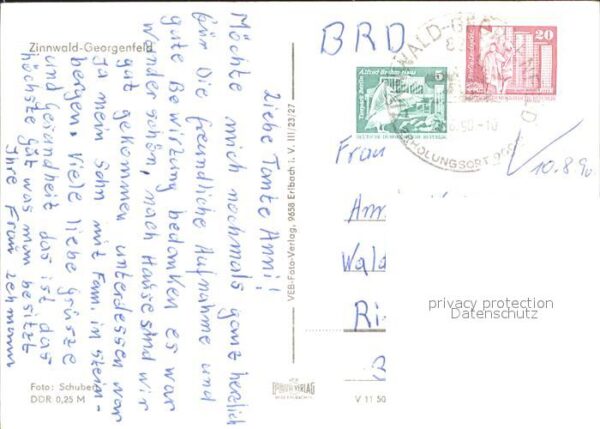 Zinnwald-Georgenfeld
Liebe Tante Anni!
Möchte mich nochmals ganz herzlich
für Die freundliche Aufnahme und
gute Bewirzung bedanken es war
wunderschön, nach Hause sind wir
gut gekommen unterdessen war
ja mein Sohn mit Fam. in stein-
bergen. Viele liebe grüsze
und gesundheit das ist das
höchste gut was man besitzt
Ihre Frau Lehmann
Foto: Schubert
DDR 0,25 M
VEB-Foto-Verlag, 9658 Erlbach i. V. III/23/27
V 11 50
BRD
5
Alfred-Brehm-Haus
Tierpark Berlin
20
90-10
ERHOLUNGSORT
10.8.90
Frau
Ann
Wald
Ri
privacy protection
Datenschutz